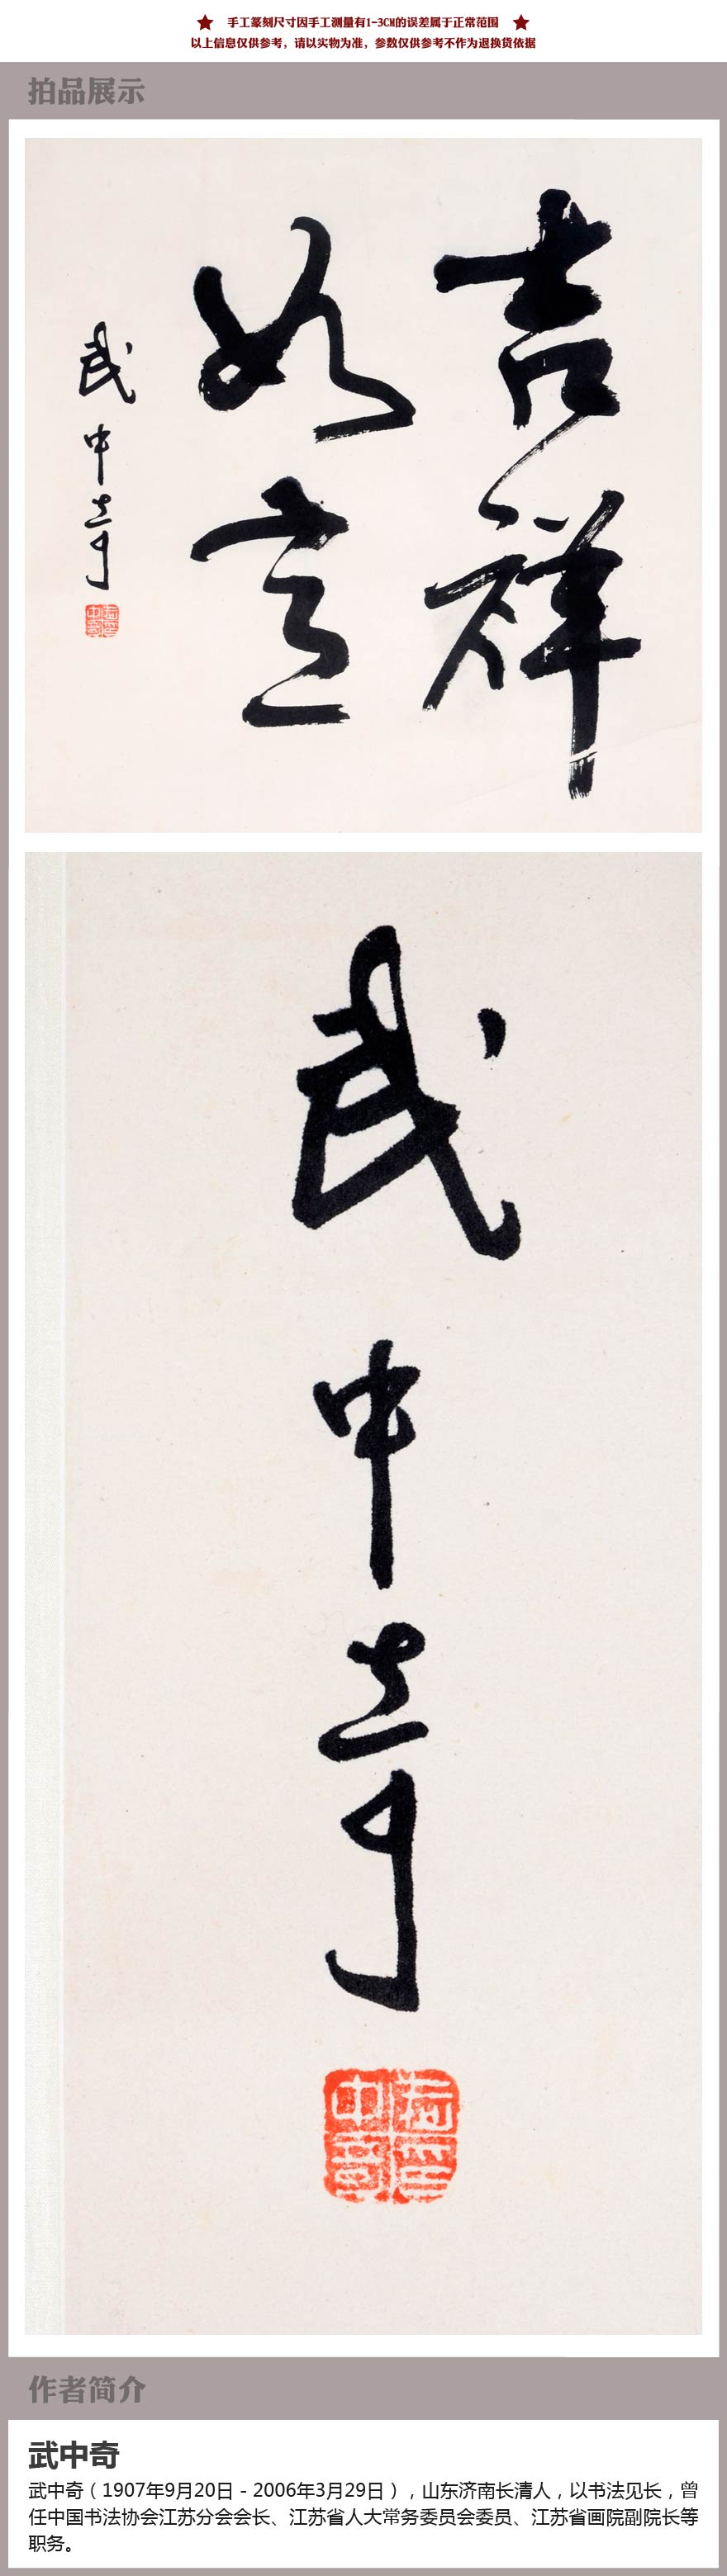 手工篆刻尺寸因手工测量有1-3CM的误差属于正常范围
以上信息仅供参考，请以实物为准，参数仅供参考不作为退换货依据
拍品展示
吉祥
如意
武中奇
武中奇
作者简介
武中奇
武中奇（1907年9月20日 - 2006年3月29日），山东济南长清人，以书法见长，曾
任中国书法协会江苏分会会长、江苏省人大常务委员会委员、江苏省画院副院长等
职务。